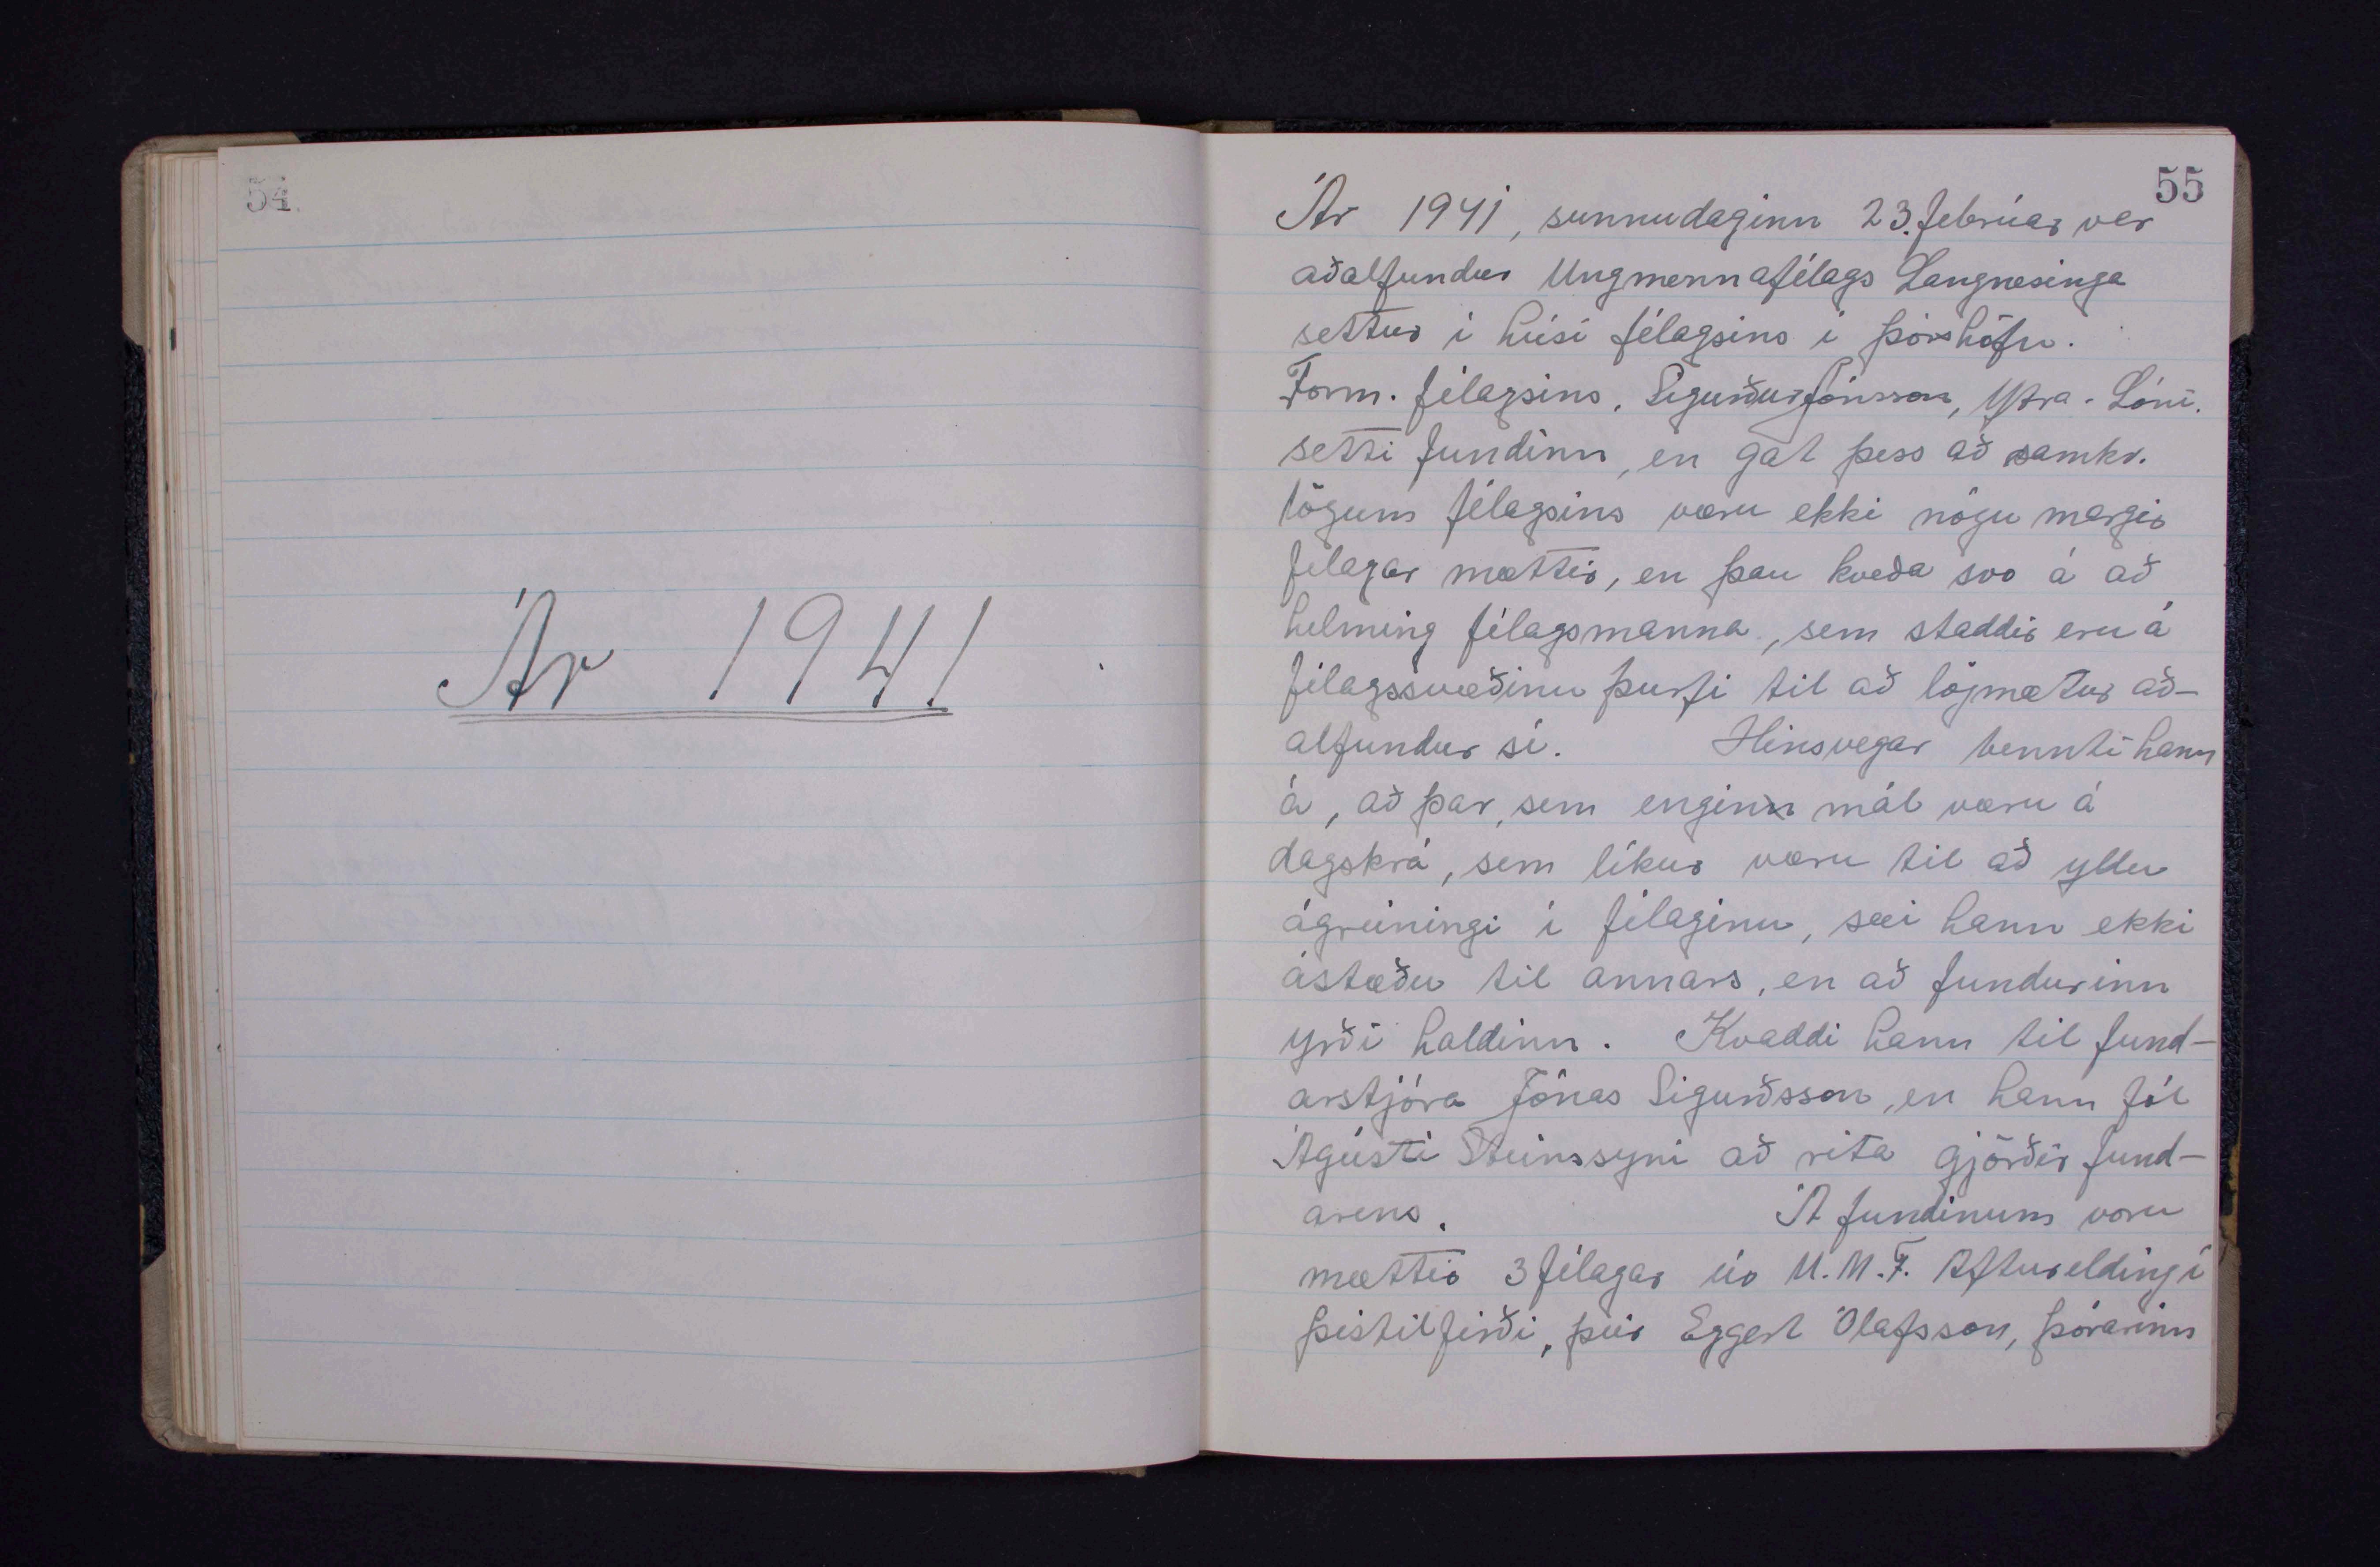 54.
Ár 1941
55
Ár 1941, sunnudaginn 23. febrúar var
aðalfundur Ungmennafélags Langnesinga
settur í húsi félagsins í Þórshöfn.
Form. félagsins, Sigurður Jónsson, Ytra-Lóni.
setti fundinn, en gat þess að samkv.
lögum félagsins væru ekki nógu margir
félagar mættir, en þau kveða svo á að
helming félagsmanna, sem staddir eru á
félagssvæðinu þurfi til að lögmætur að-
alfundur sé. Hinsvegar bennti hann
á, að þar, sem engin mál væru á
dagskrá, sem líkur væru til að yllu
ágreiningi í félaginu, sæi hann ekki
ástæðu til annars, en að fundurinn
yrði haldinn. Kvaddi hann til fund-
arstjóra Jónas Sigurðsson, en hann fól
Ágústi Steinssyni að rita gjörðir fund-
arens. Á fundinum voru
mættir 3 félagar úr U.M.F. Afturelding í
Þistilfirði, þeir Eggert Ólafsson, Þórarinn